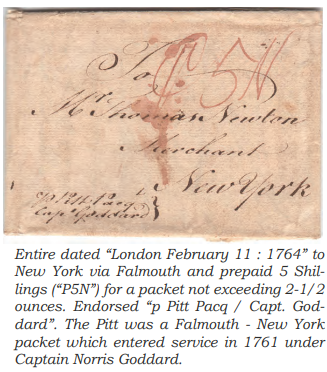 To
P 5N
Mr. Thomas Newton
Merchant
New York
p Pitt Pacqt
Capt Goddard
Entire dated “London February 11 : 1764” to
New York via Falmouth and prepaid 5 Shil-
lings (“P5N”) for a packet not exceeding 2-1/2
ounces. Endorsed “p Pitt Pacq / Capt. God-
dard”. The Pitt was a Falmouth - New York
packet which entered service in 1761 under
Captain Norris Goddard.